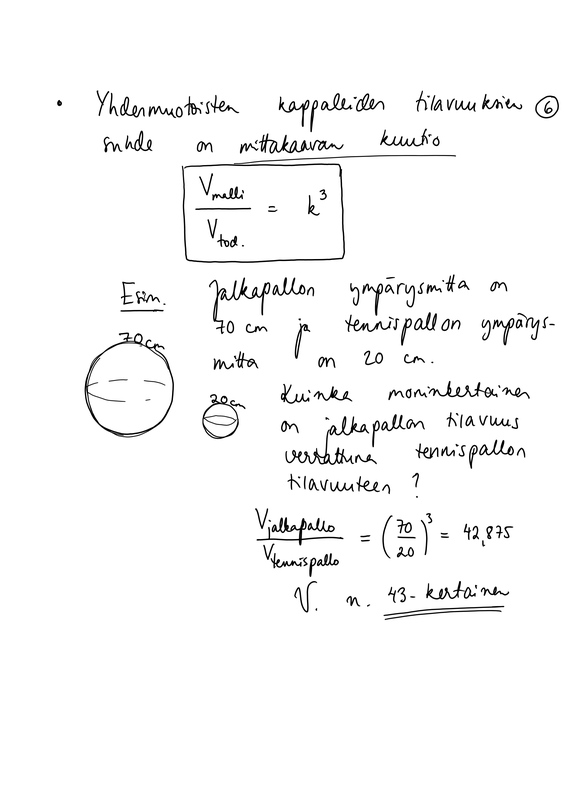 • Yhdenmuotoisten kappaleiden tilavuuksien ⑥
suhde on mittakaavan kuutio
V_malli / V_tod. = k³
Esim. Jalkapallon ympärysmitta on
70 cm ja tennispallon ympärys-
mitta on 20 cm.
70 cm
20 cm
Kuinka moninkertainen
on jalkapallon tilavuus
verrattuna tennispallon
tilavuuteen ?
V_jalkapallo / V_tennispallo = (70/20)³ = 42,875
V. n. 43-kertainen